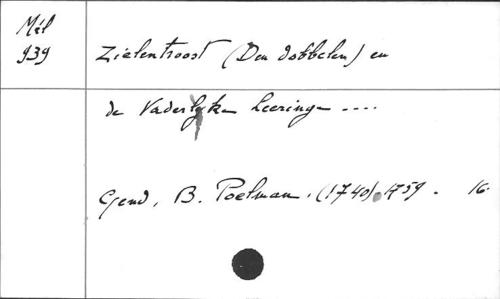 Mél
939
Zielentroost (Den dobbelen) en
de Vaderlyke Leeringe ....
Gend, B. Poelman. (1740). 1759. 16.